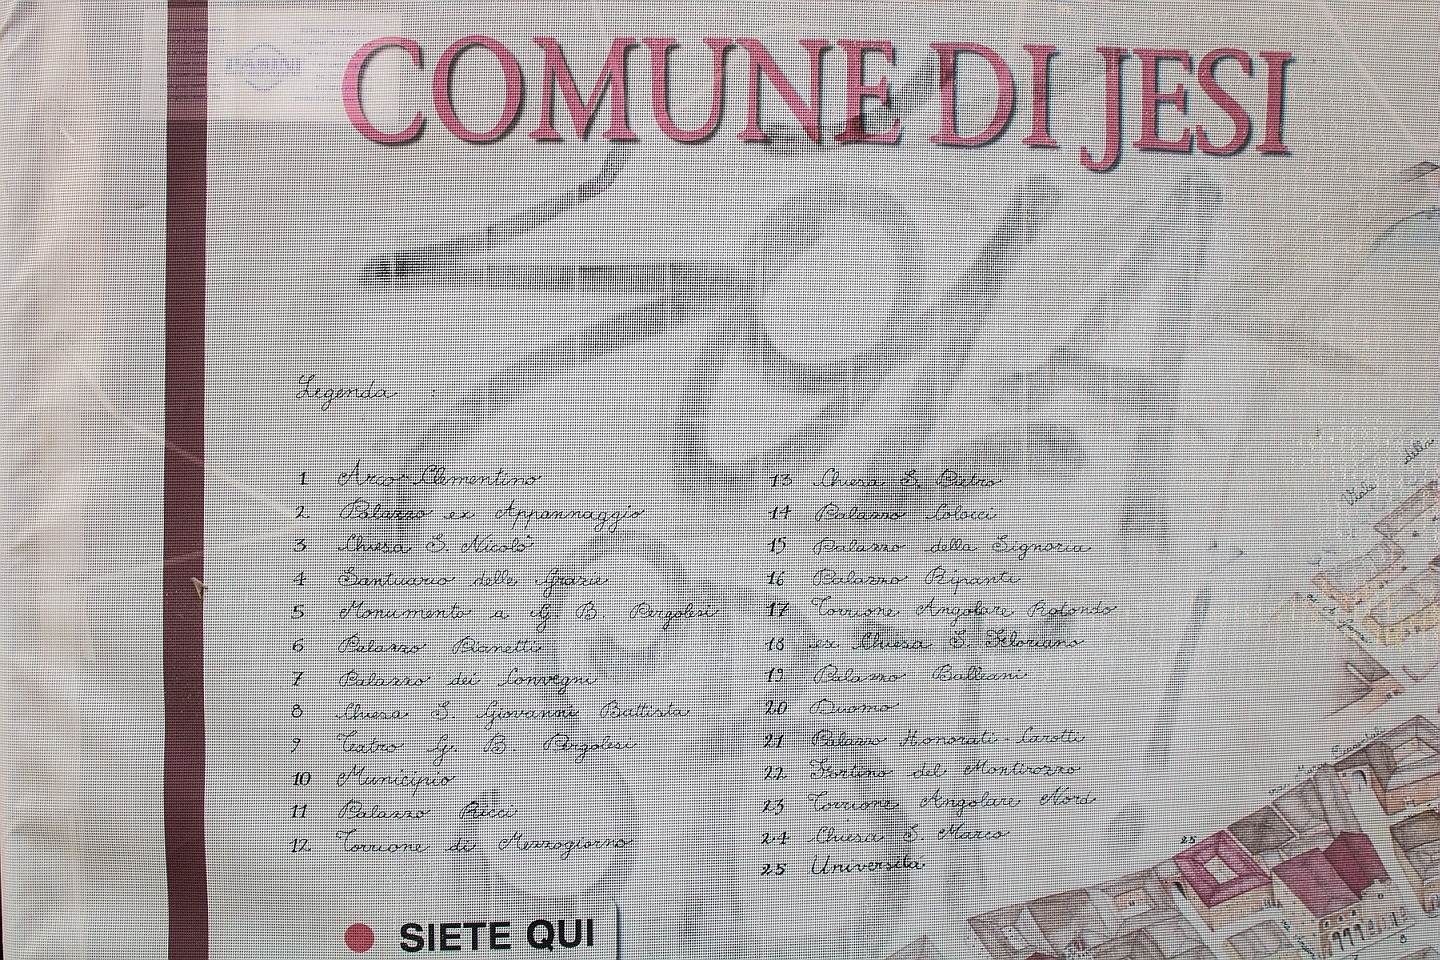 COMUNE DI JESI
Legenda :
1 Arco Clementino
2 Palazzo ex Appannaggio
3 Chiesa S. Nicolò
4 Santuario delle Grazie
5 Monumento a G. B. Pergolesi
6 Palazzo Pianetti
7 Palazzo dei Convegni
8 Chiesa S. Giovanni Battista
9 Teatro G. B. Pergolesi
10 Municipio
11 Palazzo Ricci
12 Torrione di Mezzogiorno
13 Chiesa S. Pietro
14 Palazzo Colocci
15 Palazzo della Signoria
16 Palazzo Ripanti
17 Torrione Angolare Rotondo
18 ex Chiesa S. Floriano
19 Palazzo Balleani
20 Duomo
21 Palazzo Honorati - Carotti
22 Fortino del Montirozzo
23 Torrione Angolare Nord
24 Chiesa S. Marco
25 Università
SIETE QUI
Viale della
25
8